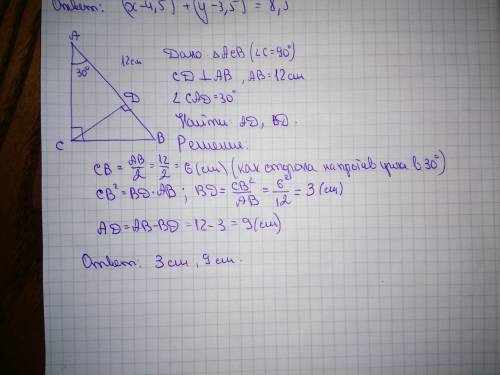 Ответ: (x-4,5)² + (y-3,5)² = 8,5
A
30°
12см
D
C
B
Дано: △ACB (∠C=90°)
CD ⊥ AB, AB=12см
∠CAD=30°
Найти: AD, BD.
Решение:
CB = AB/2 = 12/2 = 6 (см) (как сторона напротив угла в 30°)
CB² = BD·AB; BD = CB²/AB = 6²/12 = 3 (см)
AD = AB-BD = 12-3 = 9 (см)
Ответ: 3 см, 9 см.